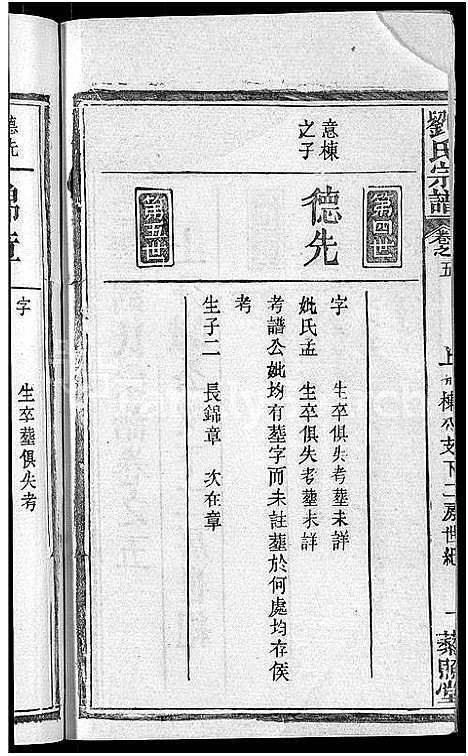 劉氏宗譜
卷之五
上 意棟公支下二房世紀
一
藜照堂
第四世
意棟
之子
德先
字 生卒俱失考塟未詳
妣氏孟 生卒俱失考塟未詳
考譜公妣均有塟字而未註塟於何處均存俟
考
生子二 長錦章 次在章
第五世
德先
字 生卒塟俱失考